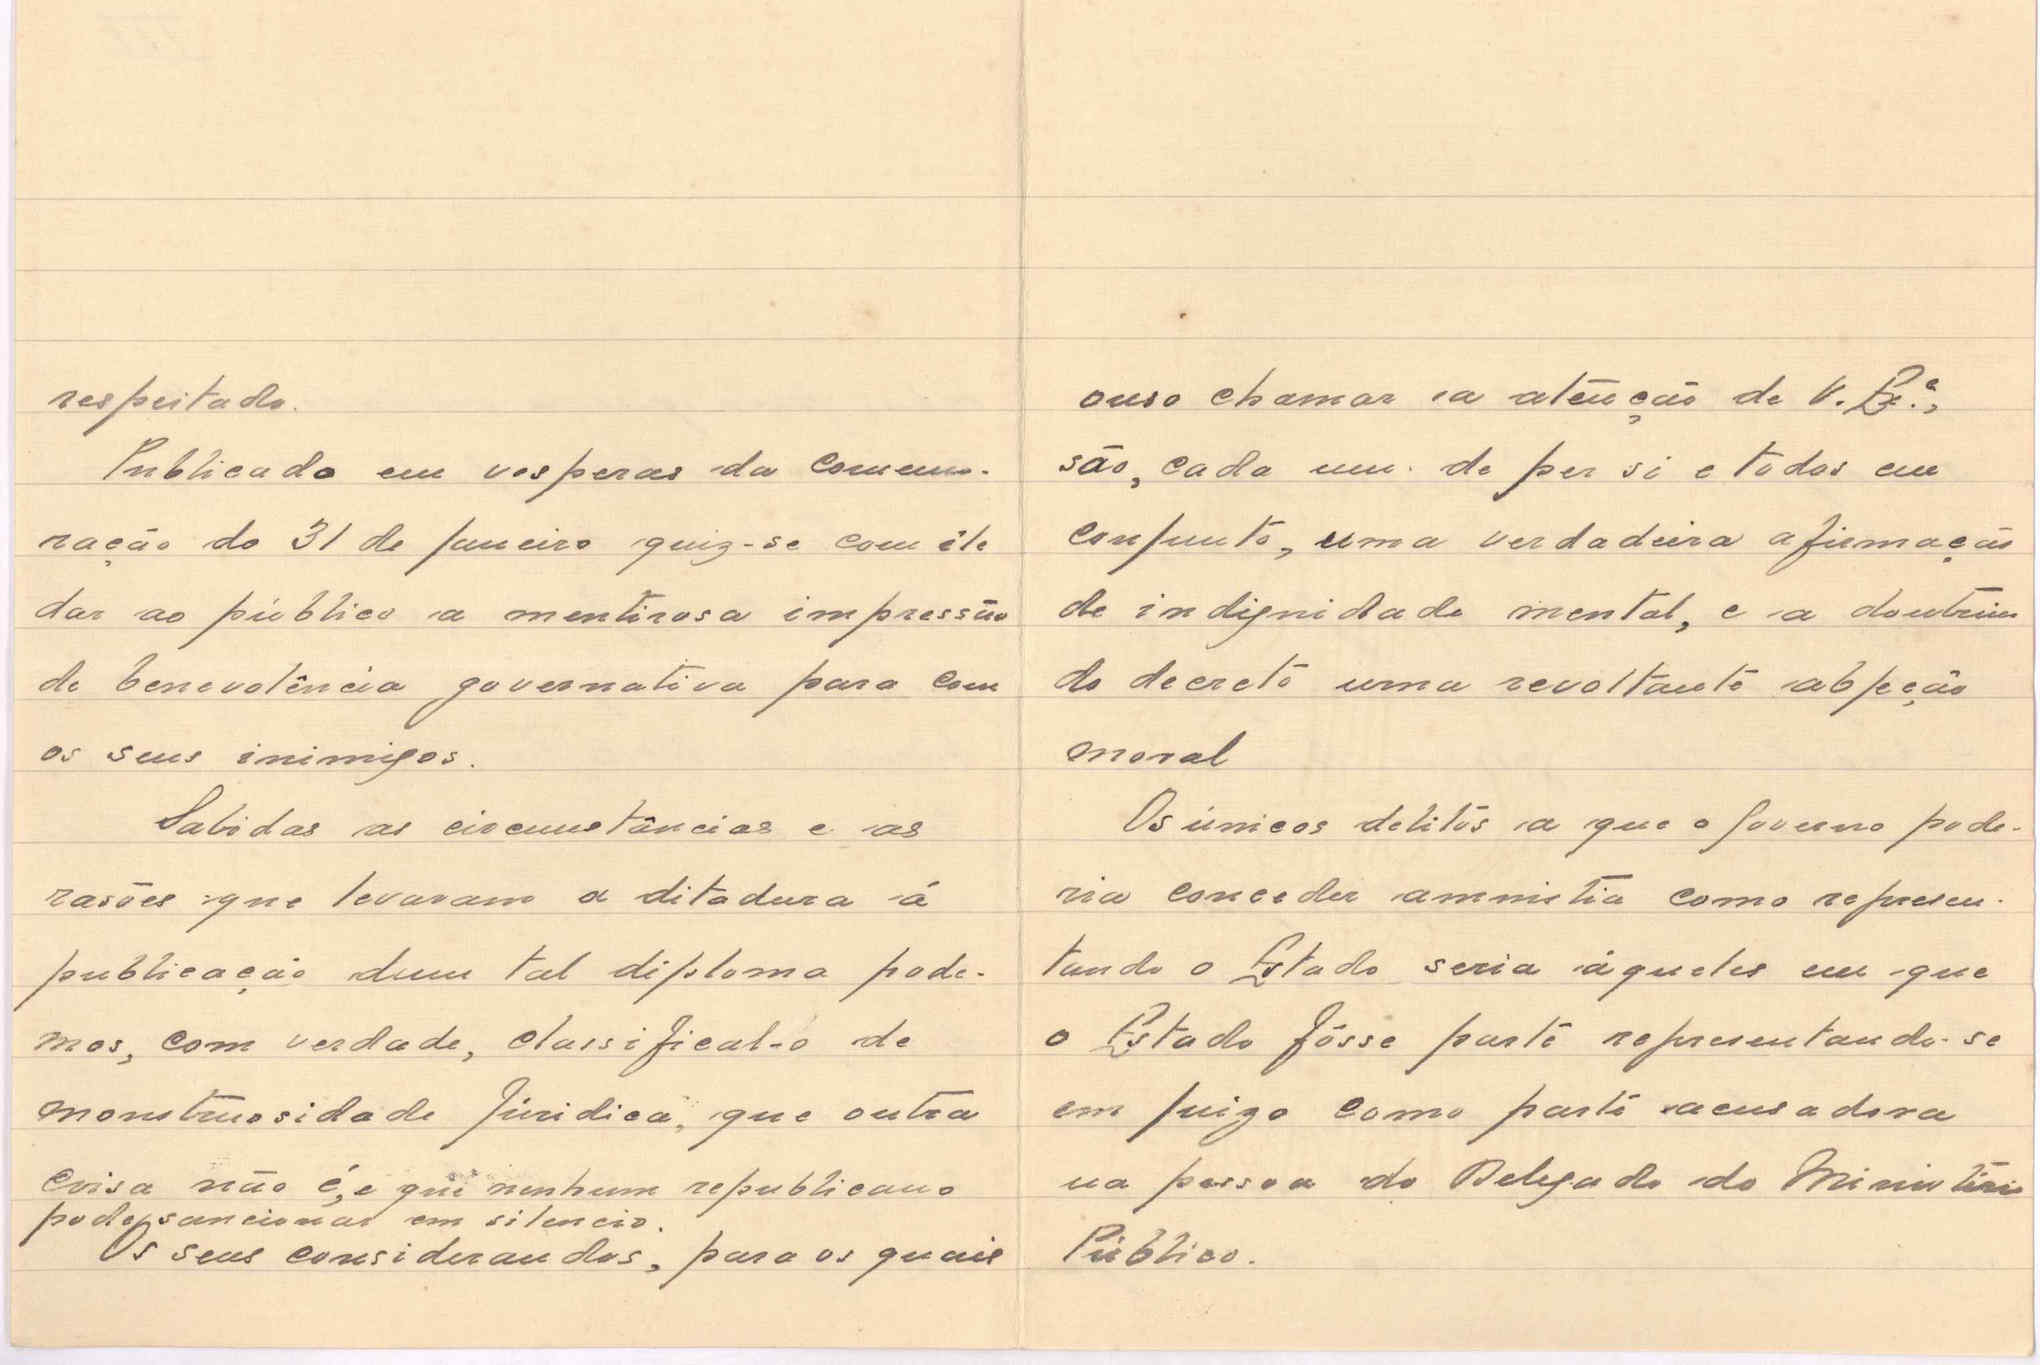 respeitado.
Publicado em vesperas da comemo-
ração do 31 de Janeiro quiz-se com êle
dar ao público a mentirosa impressão
de benevolência governativa para com
os seus inimigos.
Sabidas as circumstâncias e as
rasões que levaram a ditadura á
publicação dum tal diploma pode-
mos, com verdade, classifical-o de
monstruosidade júridica, que outra
coisa não é, e que nenhum republicano
pode sancionar em silencio.
Os seus considerandos, para os quais
ouso chamar a atenção de V. Ex.ª,
são, cada um de per si e todos em
conjunto, uma verdadeira afirmação
de indignidade mental, e a doutrina
do decreto uma revoltante abjeção
moral
Os únicos delitos a que o Governo pode-
ria conceder amnistia como represen-
tando o Estado seria áqueles em que
o Estado fôsse parte representando-se
em juizo como parte acusadora
na pessoa do Delegado do Ministério
Público.